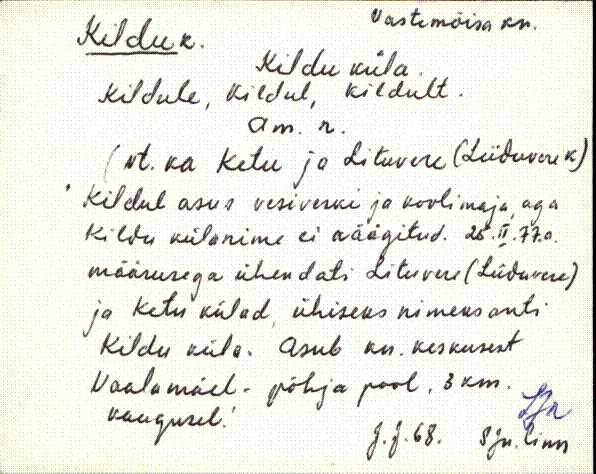 Vastemõisa kn.
Kildu k.
Kildu küla.
Kildule, Kildul, Kildult.
Am. n.
(vt. ka Ketu ja Lituvere (Liiduvere k)
Kildul asus vesiveski ja koolimaja, aga
Kildu külanime ei räägitud. 26.II.77.a.
määrusega ühendati Lituvere (Liiduvere)
ja Ketu külad, ühiseks nimeks anti
Kildu küla. Asub kn. keskusest
põhja pool, 3 km.
kaugusel.
J.J. 68. Sjn. linn